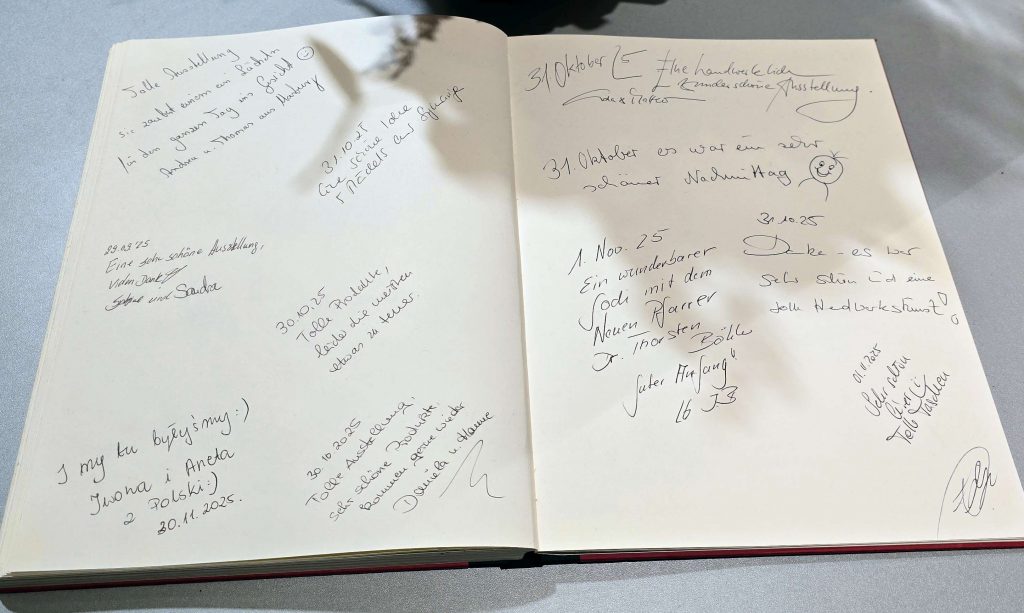 Tolle Ausstellung
sie zaubert einem ein Lächeln
für den ganzen Tag ins Gesicht
Andrea u. Thomas aus
31.10.25
Eine schöne Idee
Mädels aus
29.09.25
Eine sehr schöne Ausstellung,
vielen Dank
und Sandra
30.10.25
Tolle Produkte,
leider die meisten
etwas zu teuer.
I my tu byłyśmy :)
Iwona i Aneta
z Polski :)
30.11.2025.
30.10.2025
Tolle Ausstellung,
sehr schöne Produkte.
Kommen gerne wieder
Daniela u. Hanne
31. Oktober 25 Eine handwerklich
wunderschöne Ausstellung.
31. Oktober es war ein sehr
schöner Nachmittag
31.10.25
Danke - es war
sehr schön und eine
tolle
1. Nov. 25
Ein wunderbarer
Godi mit dem
Neuen Pfarrer
Dr. Thorsten
guter Anfang"
lb JB
01.11.2025
Sehr schön
Tolle Taschen